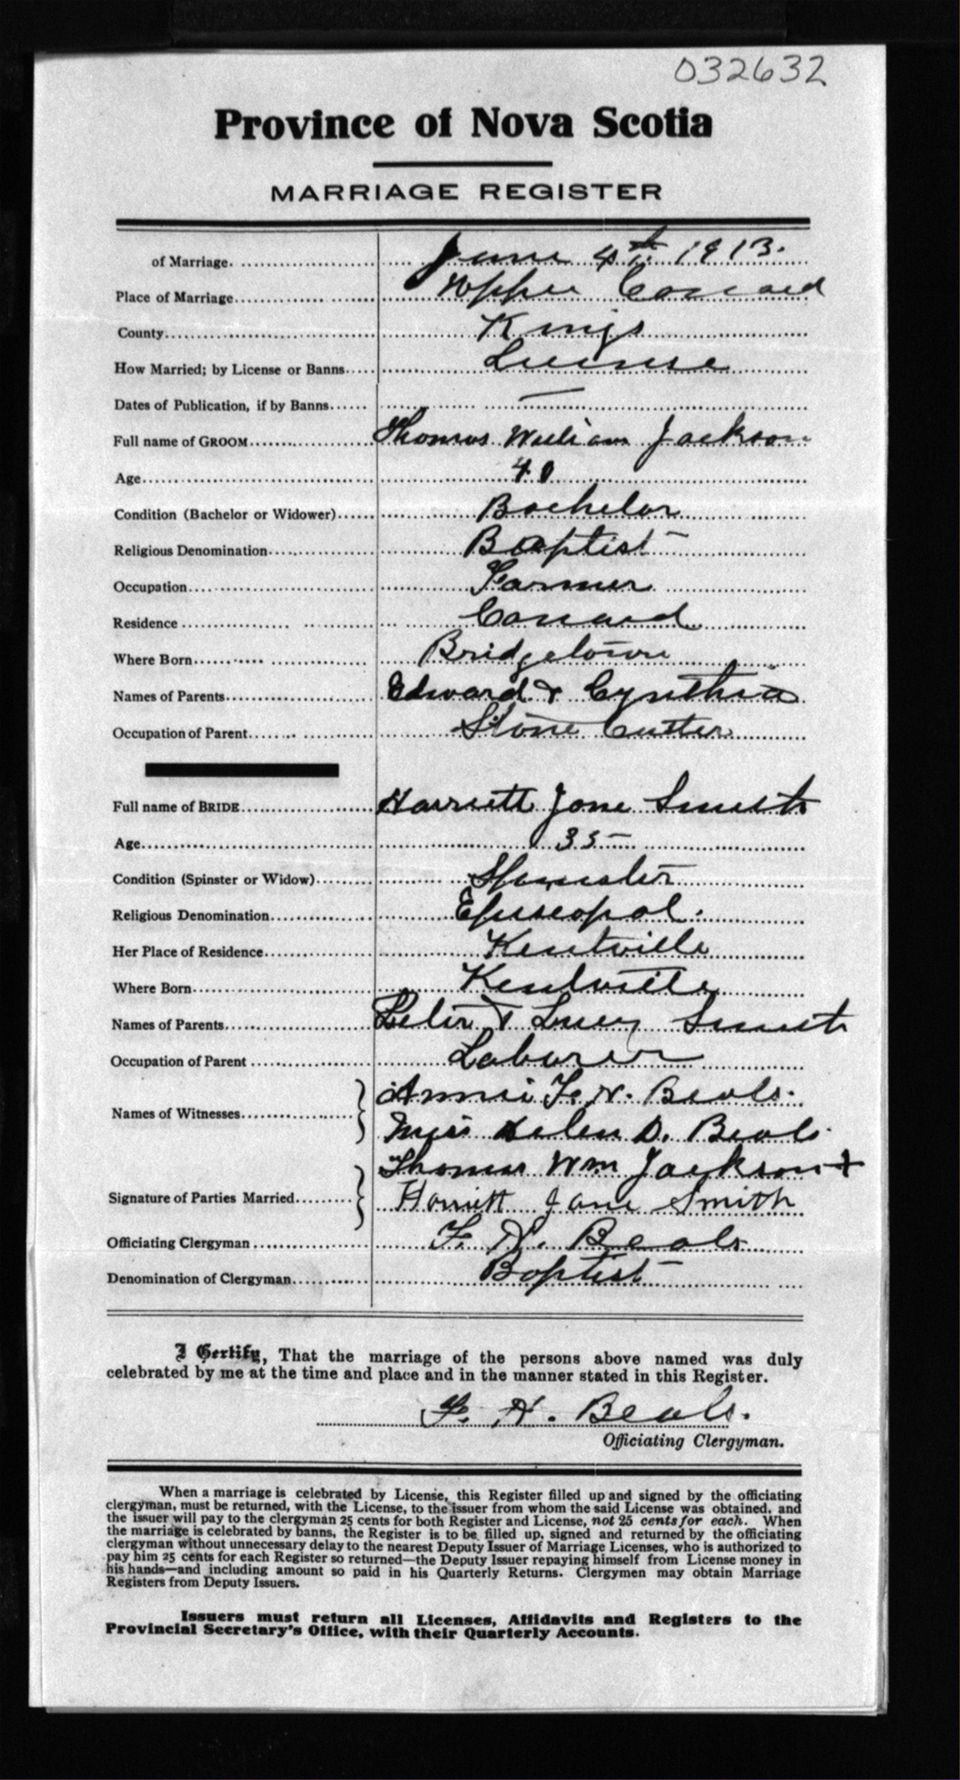 032632
Province of Nova Scotia
MARRIAGE REGISTER
of Marriage. June 4th. 1913.
Place of Marriage Upper Canard
County Kings
How Married; by License or Banns License
Dates of Publication, if by Banns —
Full name of GROOM Thomas William Jackson
Age 40
Condition (Bachelor or Widower) Bachelor
Religious Denomination Baptist
Occupation Farmer
Residence Canard
Where Born Bridgetown
Names of Parents Edward & Cynthia
Occupation of Parent Stone Cutter
Full name of BRIDE Harriett Jane Smith
Age 35
Condition (Spinster or Widow) Spinster
Religious Denomination Episcopal.
Her Place of Residence Kentville
Where Born Kentville
Names of Parents & Lucy Smith
Occupation of Parent Laborer
Names of Witnesses Annie F. N. Beals.
Miss Helen D. Beals.
Signature of Parties Married Thomas Wm Jackson +
Harriett Jane Smith
Officiating Clergyman F. H. Beals
Denomination of Clergyman Baptist
I Certify, That the marriage of the persons above named was duly
celebrated by me at the time and place and in the manner stated in this Register.
F. H. Beals.
Officiating Clergyman.
When a marriage is celebrated by License, this Register filled up and signed by the officiating
clergyman, must be returned, with the License, to the issuer from whom the said License was obtained, and
the issuer will pay to the clergyman 25 cents for both Register and License, not 25 cents for each. When
the marriage is celebrated by banns, the Register is to be filled up, signed and returned by the officiating
clergyman without unnecessary delay to the nearest Deputy Issuer of Marriage Licenses, who is authorized to
pay him 25 cents for each Register so returned—the Deputy Issuer repaying himself from License money in
his hands—and including amount so paid in his Quarterly Returns. Clergymen may obtain Marriage
Registers from Deputy Issuers.
Issuers must return all Licenses, Affidavits and Registers to the
Provincial Secretary's Office, with their Quarterly Accounts.